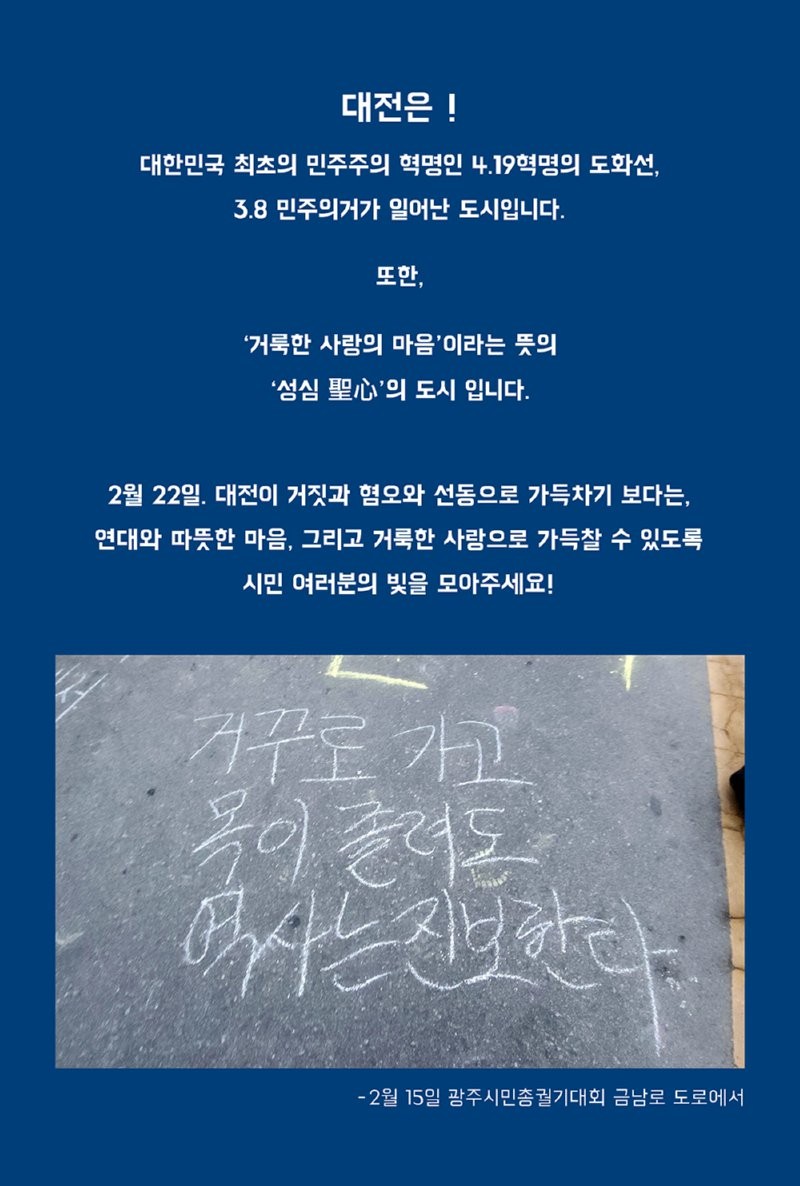 대전은 !
대한민국 최초의 민주주의 혁명인 4.19혁명의 도화선,
3.8 민주의거가 일어난 도시입니다.
또한,
‘거룩한 사랑의 마음’이라는 뜻의
‘성심 聖心’의 도시 입니다.
2월 22일. 대전이 거짓과 혐오와 선동으로 가득차기 보다는,
연대와 따뜻한 마음, 그리고 거룩한 사랑으로 가득찰 수 있도록
시민 여러분의 빛을 모아주세요!
거꾸로 가고
목이 졸려도
역사는 진보한다
-2월 15일 광주시민총궐기대회 금남로 도로에서